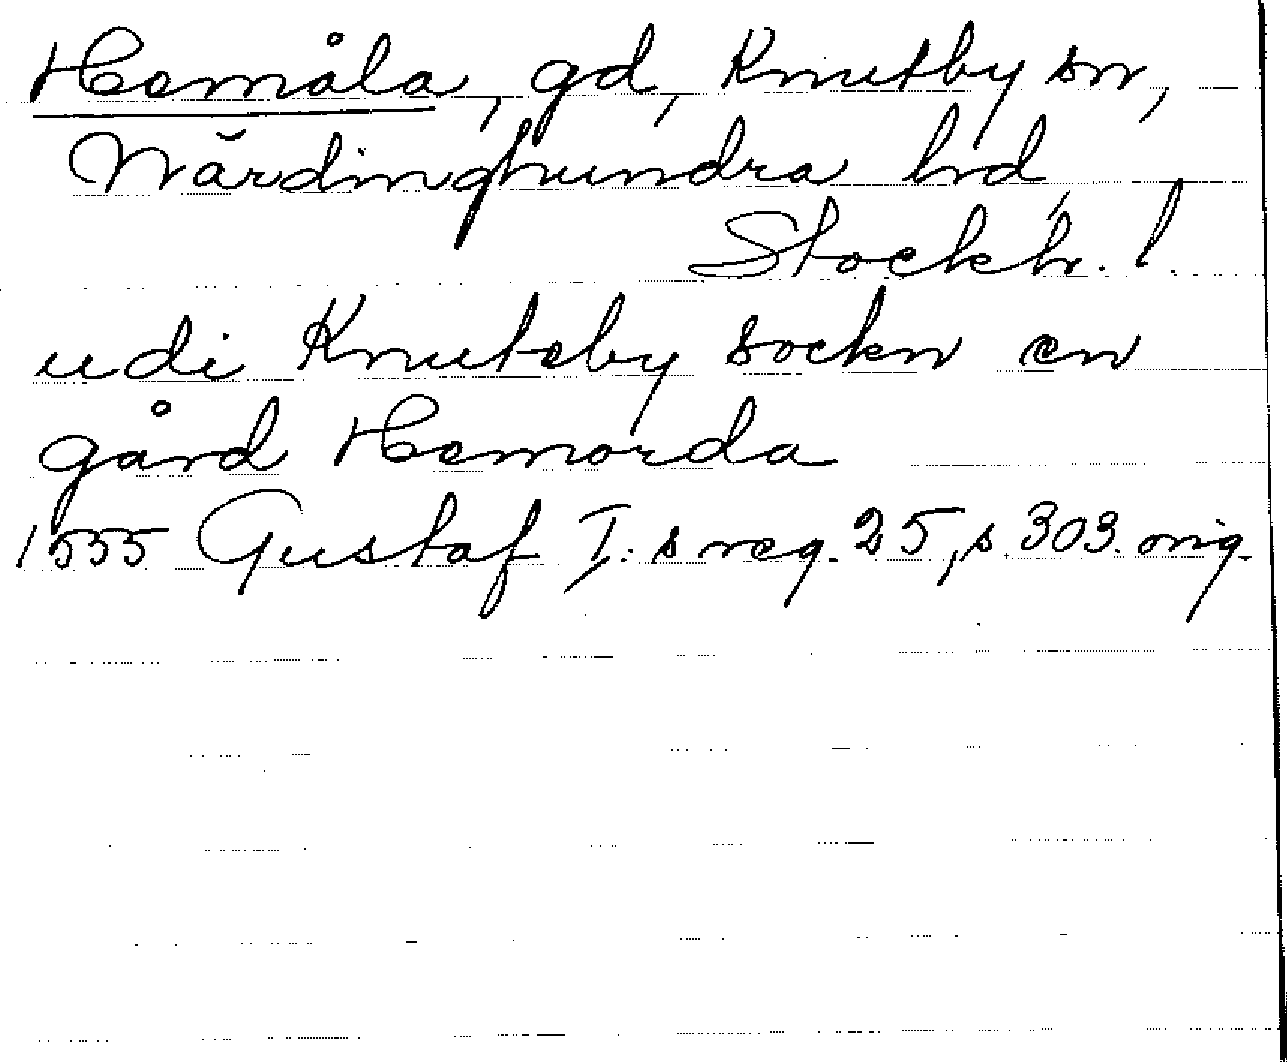 Hemåla, gd, Knutby sn,
Närdinghundra hd,
Stockh. l.
udi Knuteby sockn en
gård Hemorda
1555 Gustaf I:s reg. 25, s. 303. orig.